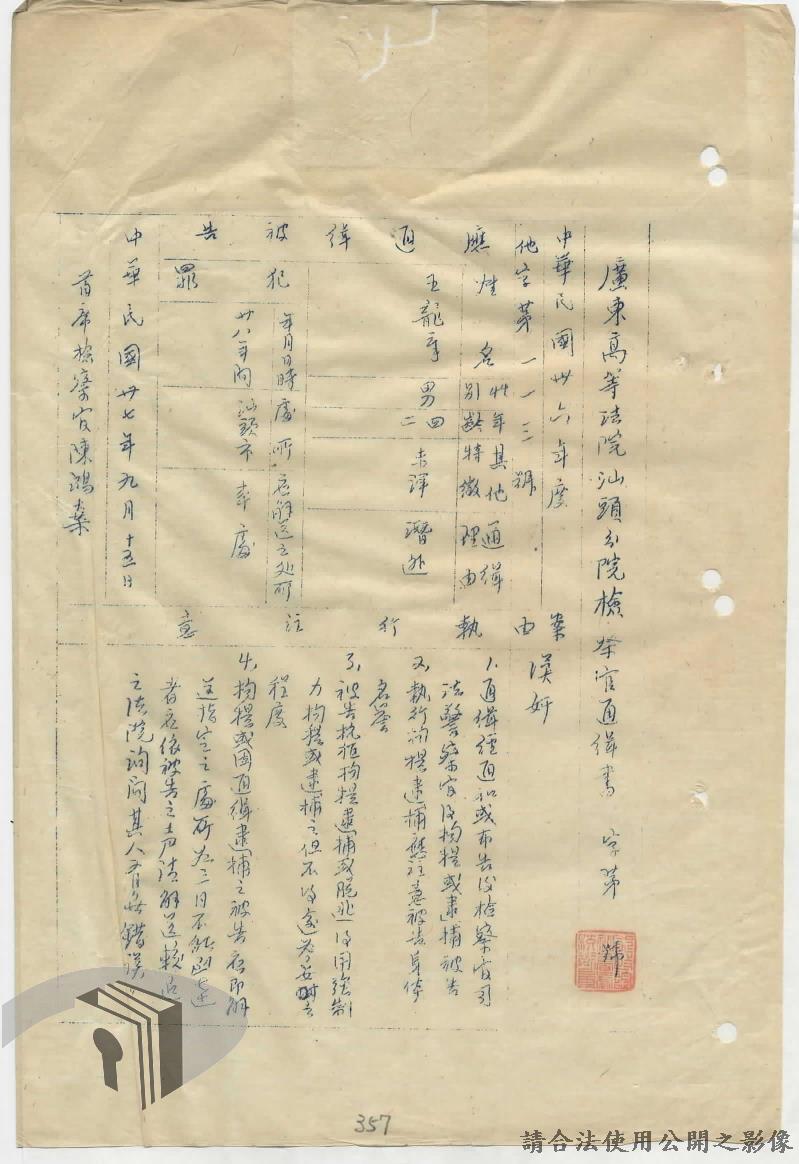 廣東高等法院汕頭分院檢察官通緝書 字第 號
中華民國卅六年度
他字第一一三號
案由 漢奸
應通緝被告
姓名 性別 年齡 其他特徵 通緝理由
王龍章 男 四二 未詳 潛逃
犯罪
年月日時 處所 應解送之处所
廿八年間 汕頭市 本處
中華民國卅七年九月十五日
首席檢察官陳鴻
執行注意
1. 通緝經通知或布告後檢察官司
法警察官得拘提或逮捕被告
2. 執行拘提逮捕應注意被告身体
名譽
3. 被告抗拒拘提逮捕或脫逃得用強制
力拘提或逮捕之但不得逾必要之
程度
4. 拘提或因通緝逮捕之被告應即解
送指定之處所如三日不能到達
者應依被告之声請解送較近
之法院詢問其人有無錯誤
357
請合法使用公開之影像